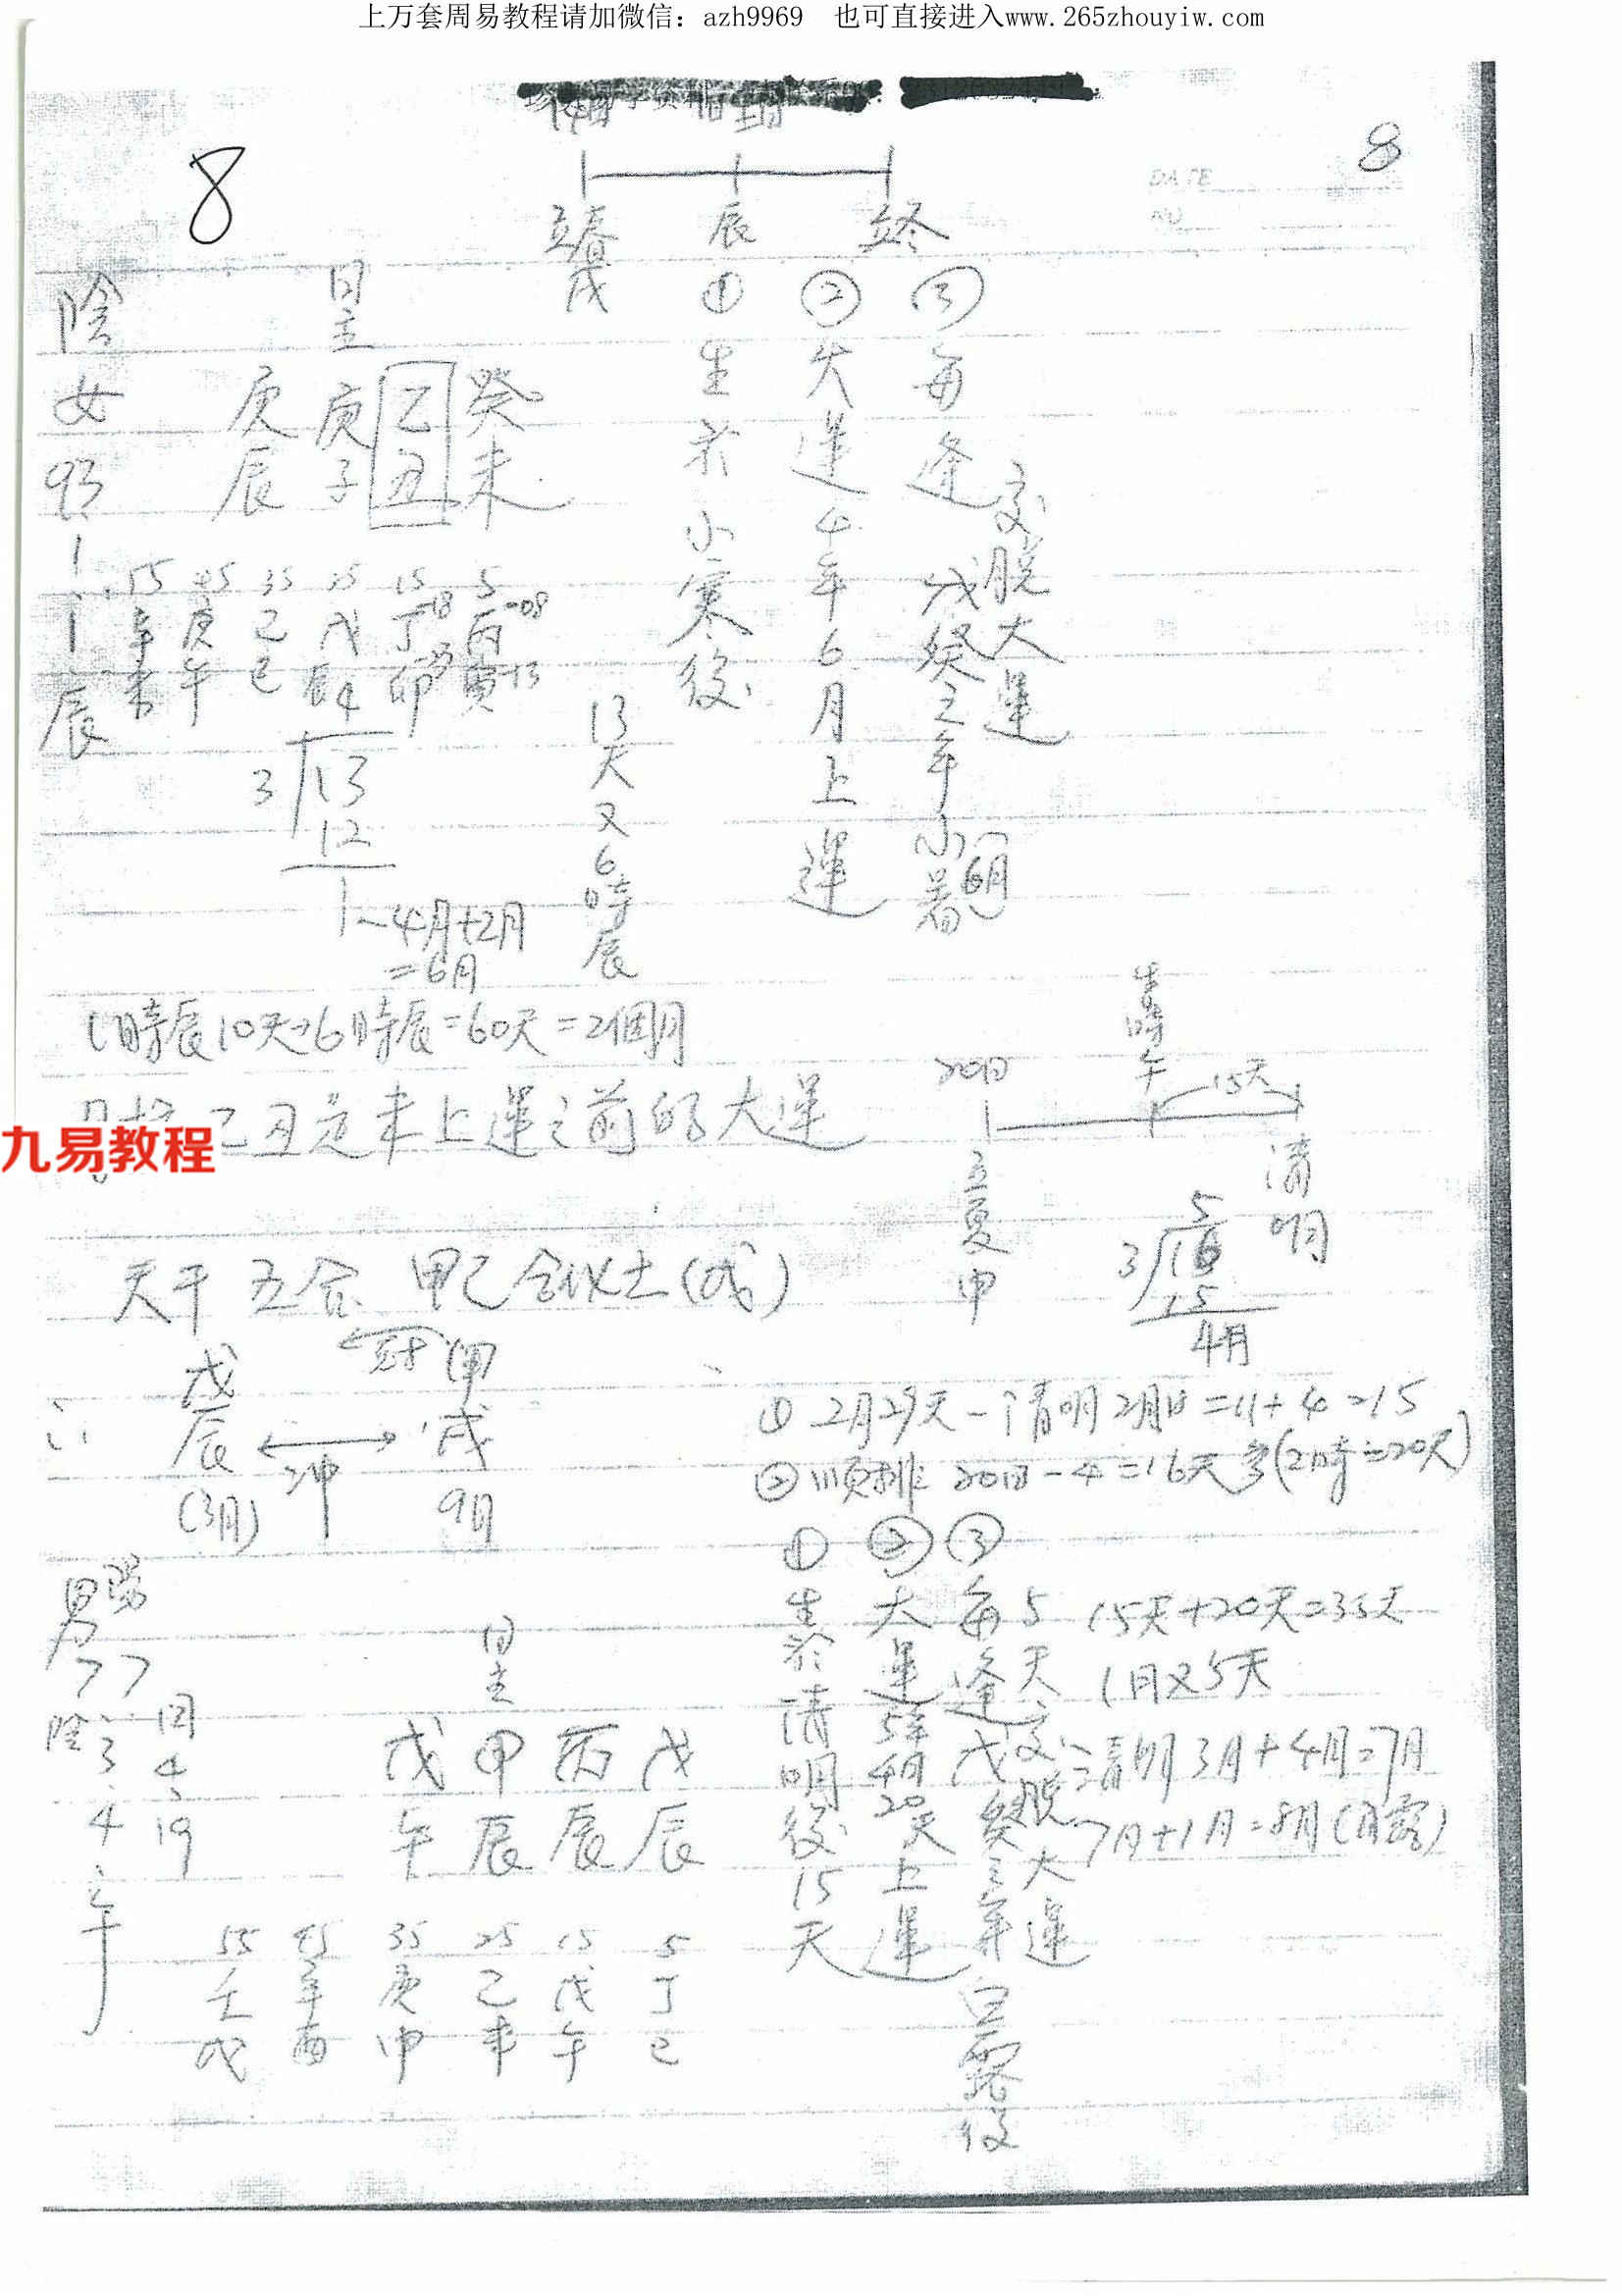 上万套周易教程请加微信：azh9969　也可直接进入www.265zhouyiw.com
8
8
DATE
NO
立春
辰
戌
陰女93.1.1.辰
日主
庚 庚 乙 癸
辰 子 丑 未
55 45 35 25 15 5
辛 庚 己 戊 丁 丙
未 午 巳 辰 卯 寅
4
3 13
12
1
4月+2月
=6月
13天又6時辰
①生於小寒後
②大運4年6月上運
③每逢戊癸之年小暑(6月)
交脱大運
1時辰10天→6時辰=60天=2個月
乙丑是未上運之前的大運
九易教程
20日
生時午
15天
立夏
申
清明
5
3 16
15
4月
天干五合 甲己合化土(戊)
戊 甲
辰 戌
冲
(3月) 9月
① 2月29天-清明2月18=11+4=15
② 順排 20日-4=16天多(2時=20天)
①生於清明後15天
②大運5年4月20天上運
③每逢戊癸之年白露後
5天交脱大運
15天+20天=35天
1月又5天
清明3月+4月=7月
7月+1月=8月(白露)
陽男77
陰3.4.午
国4.19
日主
戊 甲 丙 戊
午 辰 辰 辰
55 45 35 25 15 5
壬 辛 庚 己 戊 丁
戌 酉 申 未 午 巳